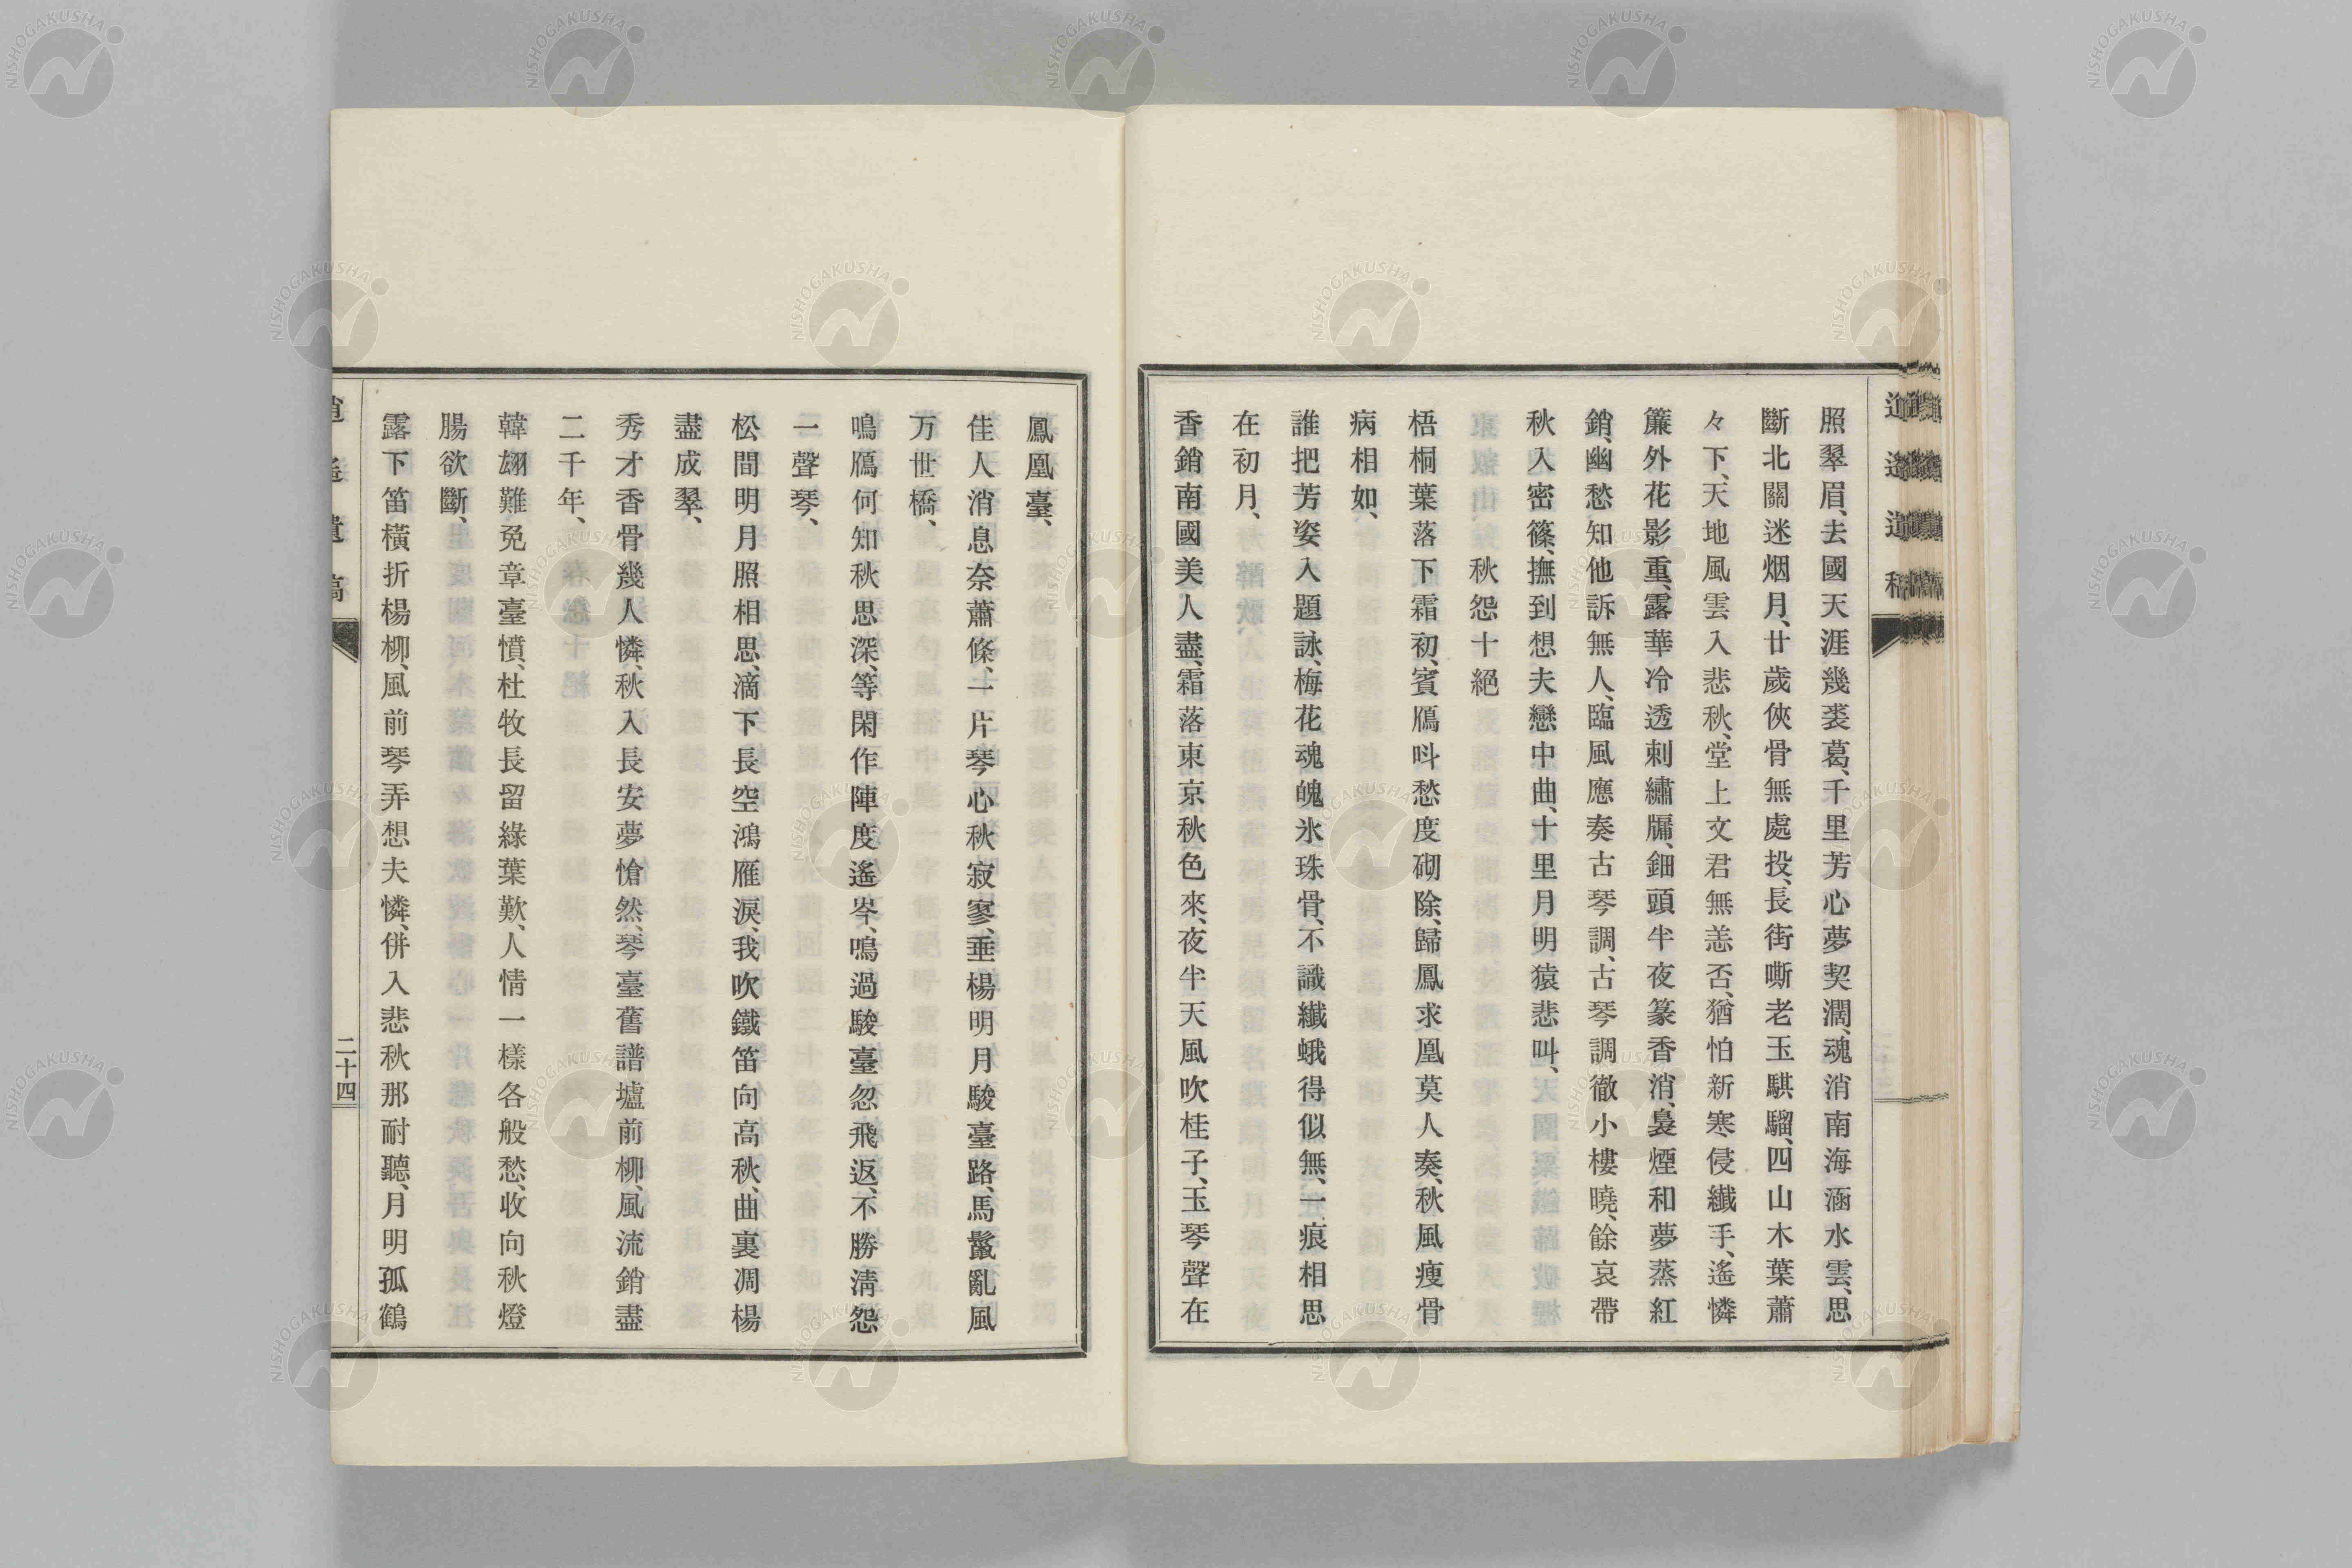 照翠眉、去國天涯幾裘葛、千里芳心夢契濶、魂消南海涵水雲、思
斷北關迷烟月、廿歲俠骨無處投、長街嘶老玉騏騮、四山木葉蕭
々下、天地風雲入悲秋、堂上文君無恙否、猶怕新寒侵纖手、遙憐
簾外花影重、露華冷透刺繡牖、鈿頭半夜篆香消、裊煙和夢蒸紅
銷、幽愁知他訴無人、臨風應奏古琴調、古琴調徹小樓曉、餘哀帶
秋入密篠、撫到想夫戀中曲、十里月明猿悲叫、
秋怨十絕
梧桐葉落下霜初、賓鴈呌愁度砌除、歸鳳求凰莫人奏、秋風瘦骨
病相如、
誰把芳姿入題詠、梅花魂魄氷珠骨、不識纖蛾得似無、一痕相思
在初月、
香銷南國美人盡、霜落東京秋色來、夜半天風吹桂子、玉琴聲在
鳳凰臺、
佳人消息奈蕭條、一片琴心秋寂寥、垂楊明月駿臺路、馬鬣亂風
万世橋、
鳴鴈何知秋思深、等閑作陣度遙岑、鳴過駿臺忽飛返、不勝淸怨
一聲琴、
松間明月照相思、滴下長空鴻雁淚、我吹鐵笛向高秋、曲裏凋楊
盡成翠、
秀才香骨幾人憐、秋入長安夢愴然、琴臺舊譜壚前柳、風流銷盡
二千年、
韓翃難免章臺憤、杜牧長留綠葉歎、人情一樣各般愁、收向秋燈
腸欲斷、
露下笛橫折楊柳、風前琴弄想夫憐、併入悲秋那耐聽、月明孤鶴
遺稿
二十四
NISHOGAKUSHA